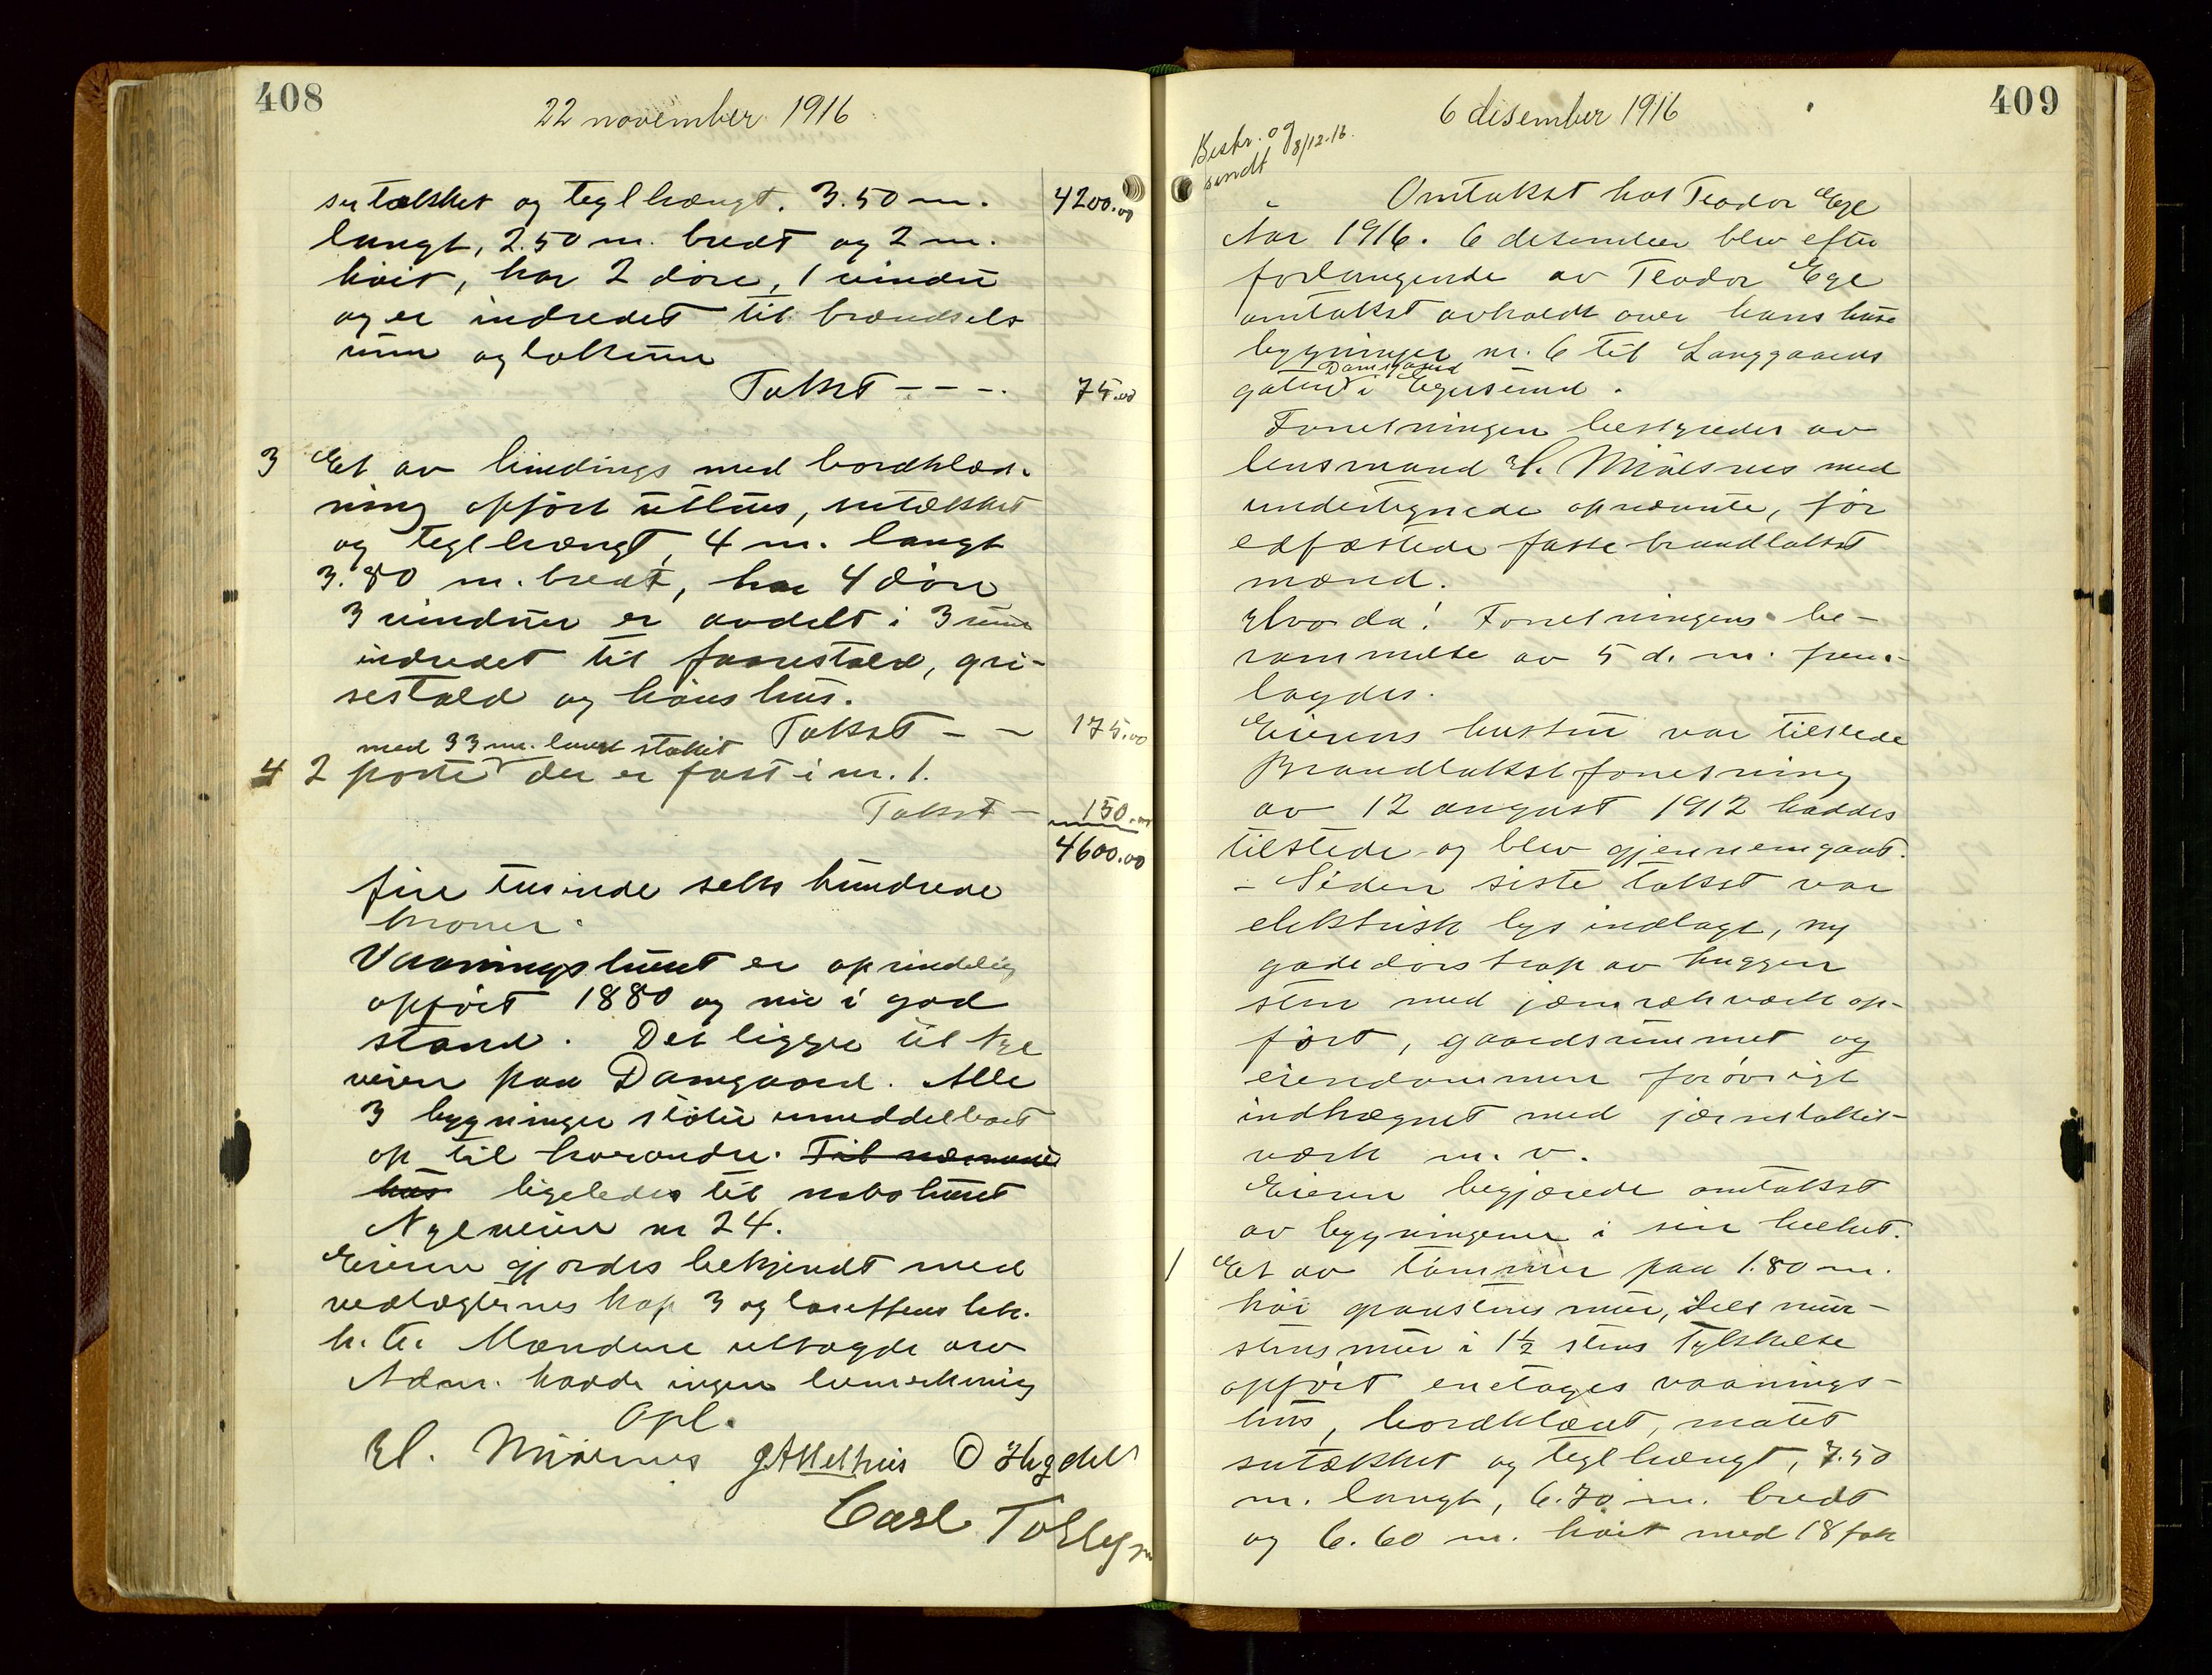 408
22 november 1916
sutækket og teglhængt. 3.50 m. 4200.00
langt, 2.50 m. bredt og 2 m.
høit, har 2 døre, 1 vindu
og er indredet til brændsels
rum og lokum
Takst - - - 75.00
3 Et av bindings med bordklæd-
ning opført uthus, sutækket
og teglhængt, 4 m. langt
3.80 m. bredt, har 4 døre
3 vinduer er avdelt i 3 rum
indredet til faarestald, gri-
sestald og hønshus.
Takst - - 175.00
med 33 m. langt stakit
4 2 porte der er fast i nr. 1.
Takst - 150.00
4600.00
fire tusinde seks hundrede
kroner.
Vaaningshuset er oprindelig
opført 1880 og nu i god
stand. Det ligger til Nye
veien paa Damgaard. Alle
3 bygninger støter umiddelbart
op til hverandre. Til nærmeste
hus ligeledes til nabohuset
Nyeveien nr 24.
Eieren gjordes bekjendt med
vedtægternes kap 3 og
Mændene
Adm. havde ingen bemerkning
Opl.
H. Mjølsnes
Carl
409
6 desember 1916
Beskr. og
sendt 8/12.16.
Omtakst hos Teodor Ege
Aar 1916. 6 desember blev efter
forlangende av Teodor Ege
omtakst avholdt over hans hus
bygninger nr. 6 til Langgaards
Damsgaard
gaten i Egersund.
Forretningen bestyredes av
lensmand H. Mjølsnes med
undertegnede opnævnte, før
edfæstede faste brandtakst
mænd.
Hvorda! Forretningens be-
rammelse av 5 d. m. frem-
lagdes.
Eierens hustru var tilstede
Brandtakstforretning
av 12 august 1912 haddes
tilstede og blev gjennemgaat.
- Siden siste takst var
elektrisk lys indlagt, ny
gadedørstrap av huggen
sten med jærnrækværk op-
ført, gaardsrummet og
eiendommen forøvrigt
indhægnet med jærnstakit-
værk m. v.
Eieren begjærede omtakst
av bygningene i sin helhet.
1 Et av tømmer paa 1.80 m.
høi graastens mur, dels mur-
stensmur i 1½ stens tykkelse
opført enetages vaanings-
hus, bordklædt, malet
sutækket og teglhængt, 7.50
m. langt, 6.70 m. bredt
og 6.60 m. høit med 18 fak